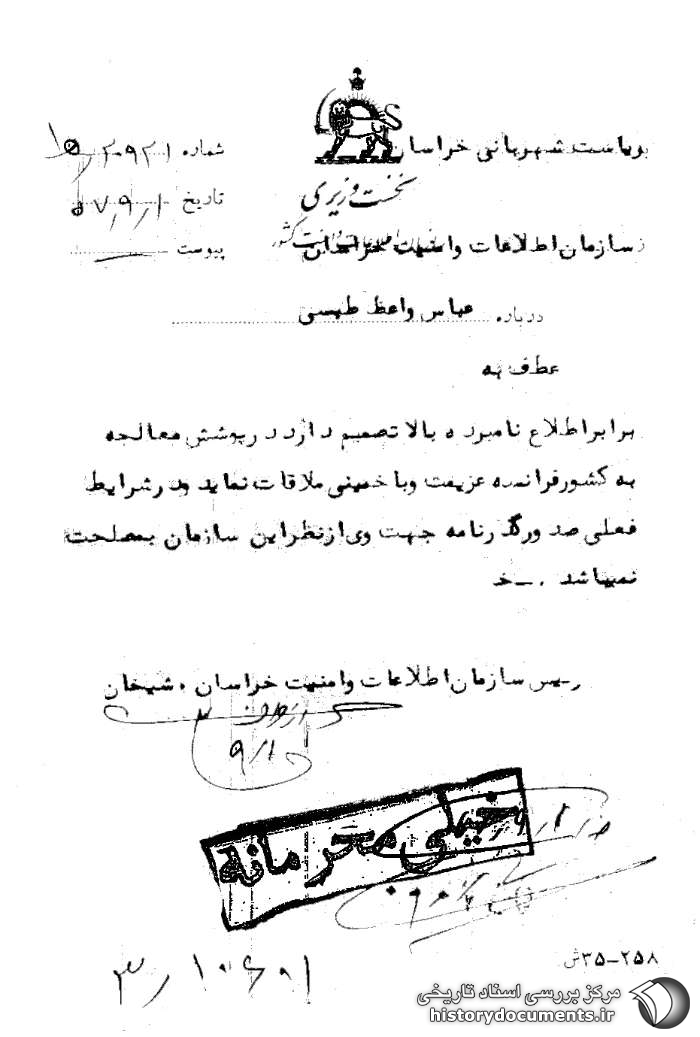 بریاست شهربانی خراسان
شماره ۲۰۹۲۱
نخست وزیری
تاریخ ۵۷٫۹٫۱
سازمان اطلاعات و امنیت کشور
سازمان اطلاعات و امنیت خراسان
پیوست
درباره عباس واعظ طبسی
عطف به
برابر اطلاع نامبرده بالا تصمیم دارد در پوشش معالجه
به کشور فرانسه عزیمت و با خمینی ملاقات نماید و در شرایط
فعلی صدور گذرنامه جهت وی از نظر این سازمان بمصلحت
نمیباشد . ـخ
رئیس سازمان اطلاعات و امنیت خراسان . شیخان
خیلی محرمانه
۳۵-۲۵۸ش
مرکز بررسی اسناد تاریخی
historydocuments.ir